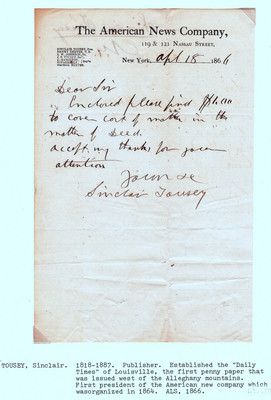 The American News Company,
119 & 121 Nassau Street,
SINCLAIR TOUSEY, Pres.
New York, Apl 18 1866
Dear Sir
Enclosed please find $1.00
to cover cost of matter in the
matter of Deed.
accept my thanks for your
attention
Yours &c
Sinclair Tousey
TOUSEY, Sinclair. 1818-1887. Publisher. Established the "Daily
Times" of Louisville, the first penny paper that
was issued west of the Alleghany mountains.
First president of the American new company which
wasorganized in 1864. ALS, 1866.